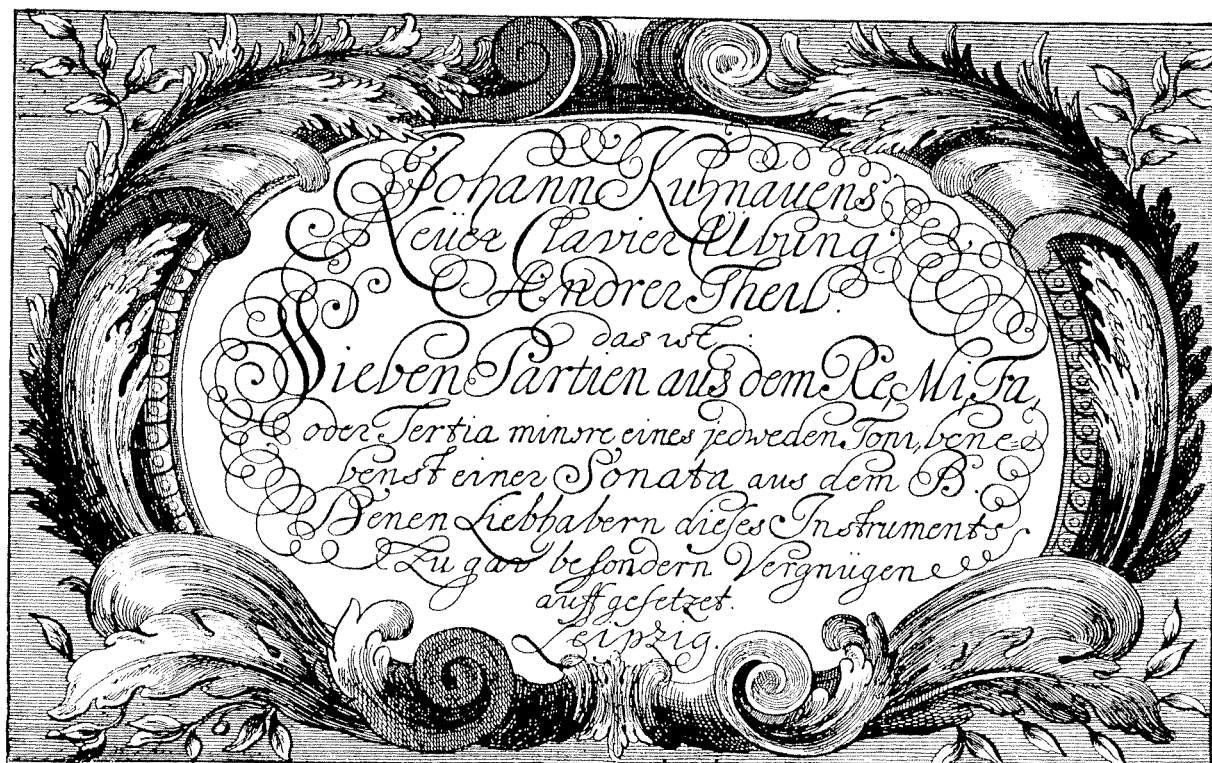 Johann Kuhnauens
Neüer Clavier Übung
Andrer Theil.
das ist:
Sieben Partien aus dem Re, Mi, Fa,
oder Tertia minore eines jedweden Toni, bene=
benst einer Sonata aus dem B.
Denen Liebhabern dieses Instruments
Zu gar besondern Vergnügen
auffgesetzet.
Leipzig.